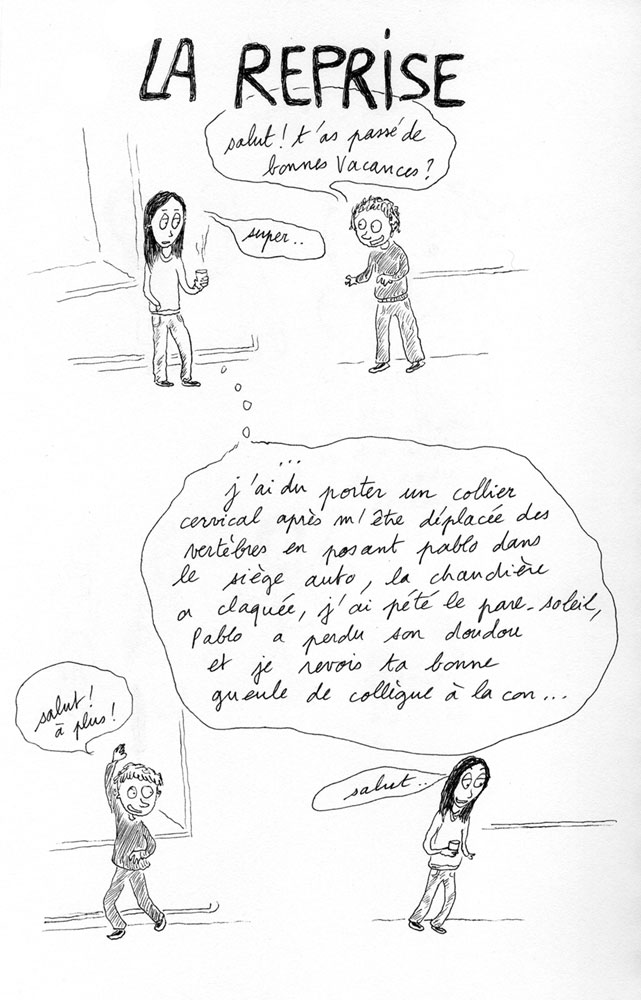 LA REPRISE
salut! t'as passé de
bonnes vacances?
super..
...
j'ai du porter un collier
cervical après m'être déplacée des
vertèbres en posant pablo dans
le siège auto, la chaudière
a claquée, j'ai pété le pare-soleil,
Pablo a perdu son doudou
et je revois ta bonne
gueule de collègue à la con...
salut!
à plus!
salut..